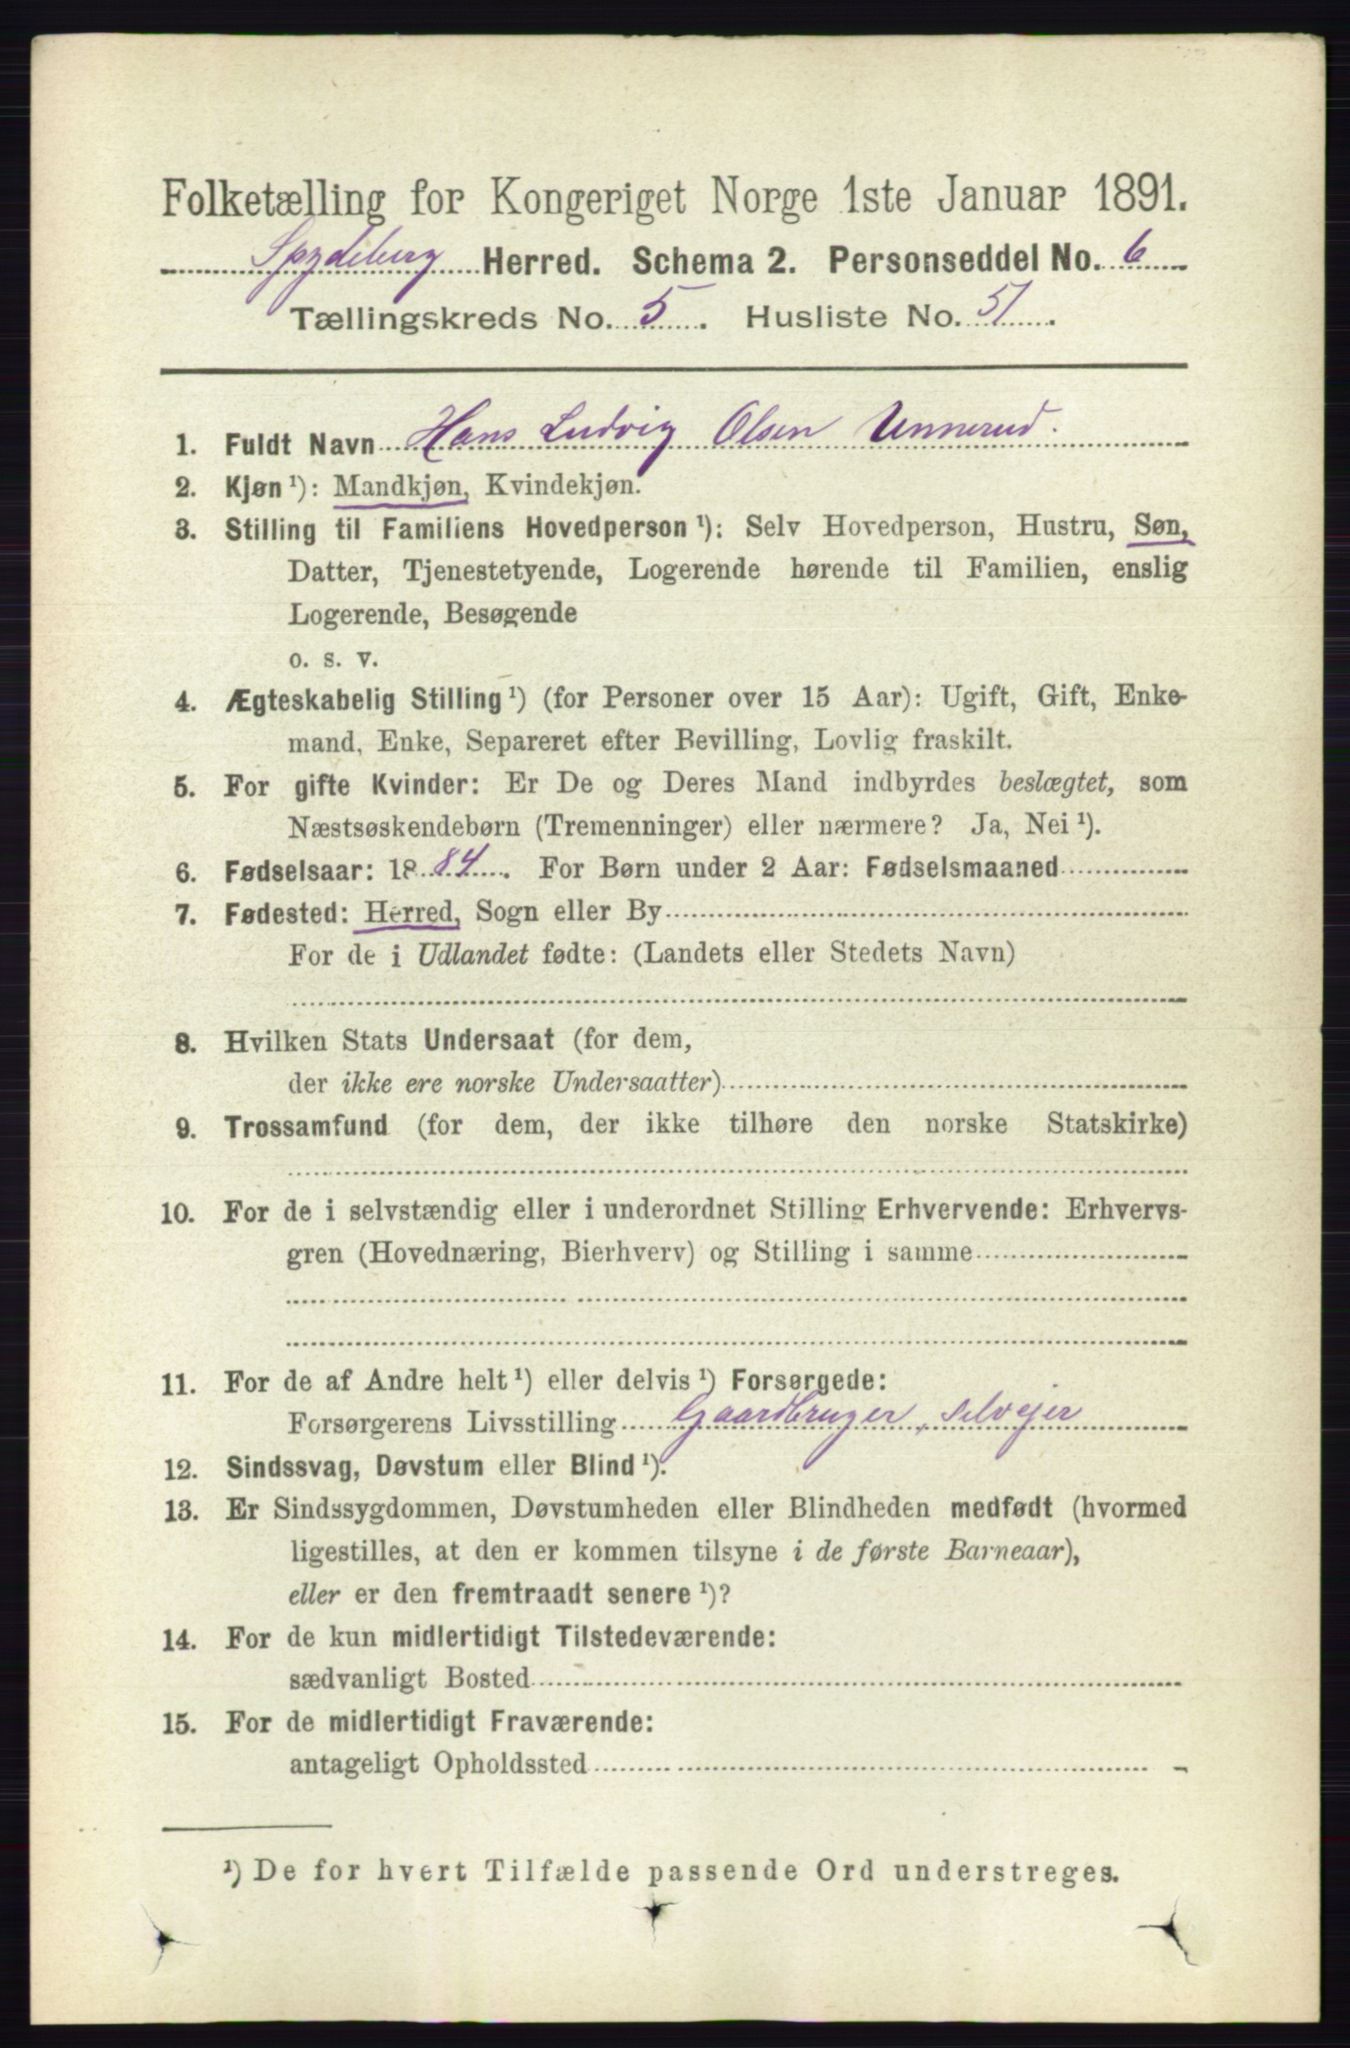 Folketælling for Kongeriget Norge 1ste Januar 1891.
Spydeberg Herred. Schema 2. Personseddel No. 6
Tællingskreds No. 5. Husliste No. 51.
1. Fuldt Navn Hans Ludvig Olsen Unnerud.
2. Kjøn¹): Mandkjøn, Kvindekjøn.
3. Stilling til Familiens Hovedperson¹): Selv Hovedperson, Hustru, Søn,
Datter, Tjenestetyende, Logerende hørende til Familien, enslig
Logerende, Besøgende
o. s. v.
4. Ægteskabelig Stilling¹) (for Personer over 15 Aar): Ugift, Gift, Enke-
mand, Enke, Separeret efter Bevilling, Lovlig fraskilt.
5. For gifte Kvinder: Er De og Deres Mand indbyrdes beslægtet, som
Næstsøskendebørn (Tremenninger) eller nærmere? Ja, Nei¹).
6. Fødselsaar: 1884. For Børn under 2 Aar: Fødselsmaaned
7. Fødested: Herred, Sogn eller By
For de i Udlandet fødte: (Landets eller Stedets Navn)
8. Hvilken Stats Undersaat (for dem,
der ikke ere norske Undersaatter)
9. Trossamfund (for dem, der ikke tilhøre den norske Statskirke)
10. For de i selvstændig eller i underordnet Stilling Erhvervende: Erhvervs-
gren (Hovednæring, Bierhverv) og Stilling i samme
11. For de af Andre helt¹) eller delvis¹) Forsørgede:
Forsørgerens Livsstilling Gaardbruger, selvejer
12. Sindssvag, Døvstum eller Blind¹).
13. Er Sindssygdommen, Døvstumheden eller Blindheden medfødt (hvormed
ligestilles, at den er kommen tilsyne i de første Barneaar),
eller er den fremtraadt senere¹)?
14. For de kun midlertidigt Tilstedeværende:
sædvanligt Bosted
15. For de midlertidigt Fraværende:
antageligt Opholdssted
¹) De for hvert Tilfælde passende Ord understreges.